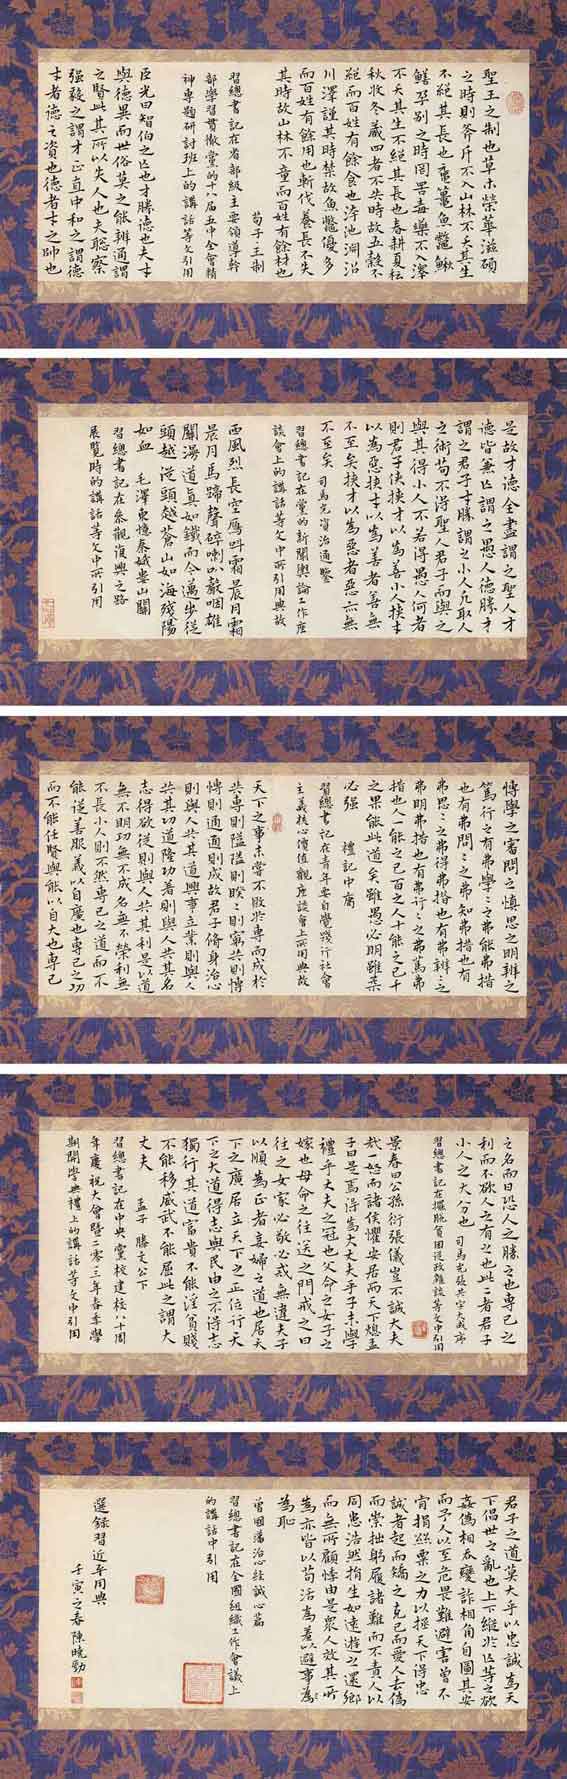 聖王之制也草木榮華滋碩
之時則斧斤不入山林不夭其生
不絕其長也黿鼉魚鼈鰍
鱣孕別之時罔罟毒藥不入澤
不夭其生不絕其長也春耕夏耘
秋收冬藏四者不失時故五穀不
絕而百姓有餘食也洿池淵沼
川澤謹其時禁故魚鼈優多
而百姓有餘用也斬伐養長不失
其時故山林不童而百姓有餘材也
荀子王制
習總書記在省部級主要領導幹
部學習貫徹黨的十八屆五中全會精
神專題研討班上的講話等文引用
臣光曰智伯之亡也才勝德也夫才
與德異而世俗莫之能辨通謂
之賢此其所以失人也夫聰察
強毅之謂才正直中和之謂德
才者德之資也德者才之帥也
是故才德全盡謂之聖人才
德皆兼亡謂之愚人德勝才
謂之君子才勝謂之小人凡取人
之術苟不得聖人君子而與之
與其得小人不若得愚人何者
則君子俠挾才以為善小人挾才
以為惡挾才以為善者善無
不至矣挾才以為惡者惡亦無
不至矣 司馬光資治通鑒
習總書記在黨的新聞輿論工作座
談會上的講話等文中所引用典故
西風烈長空雁叫霜晨月霜
晨月馬蹄聲碎喇叭聲咽雄
關漫道真如鐵而今邁步從
頭越從頭越蒼山如海殘陽
如血 毛澤東憶秦娥婁山關
習總書記在參觀復興之路
展覽時的講話等文中所引用
博學之審問之慎思之明辨之
篤行之有弗學〻之弗能弗措
也有弗問〻之弗知弗措也有
弗思〻之弗得弗措也有弗辨〻之
弗明弗措也有弗行〻之弗篤弗
措也人一能之己百之人十能之己千
之果能此道矣雖愚必明雖柔
必強 禮記中庸
習總書記在青年要自覺踐行社會
主義核心價值觀座談會上所用典故
天下之事未嘗不敗於專而成於
共專則隘隘則睽〻則窮共則博
博則通通則成故君子脩身治心
則與人共其道興事立業則與人
共其功道隆功著則與人共其名
志得欲從則與人共其利是以道
無不明功無不成名無不榮利無
不長小人則不然專己之道而不
能從善服義以自廣也專己之功
而不能任賢與能以自大也專己
之名而日恐人之勝之也專己之
利而不欲人之有之也此二者君子
小人之大分也 司馬光張共字大成序
習總書記在擺脫貧困從政雜談等文中引用
景春曰公孫衍張儀豈不誠大夫
哉一怒而諸侯懼安居而天下熄孟
子曰是焉得為大丈夫乎子未學
禮乎丈夫之冠也父命之女子之
嫁也母命之往送之門戒之曰
往之女家必敬必戒無違夫子
以順為正者妾婦之道也居天
下之廣居立天下之正位行天
下之大道得志與民由之不得志
獨行其道富貴不能淫貧賤
不能移威武不能屈此之謂大
丈夫 孟子滕文公下
習總書記在中央黨校建校八十周
年慶祝大會暨二零一三年春季學
期開學典禮上的講話等文中引用
君子之道莫大乎以忠誠為天
下倡世之亂也上下縱於亡等之欲
姦偽相吞變詐相角自圖其安
而予人以至危畏難避害曾不
肯捐絲粟之力以拯天下得忠
誠者起而矯之克己而愛人去偽
而崇拙躬履諸難而不責人以
同患浩然捐生如遠遊之還鄉
而無所顧悸由是眾人效其所
為亦皆以苟活為羞以避事為
為恥
曾國藩治心經誠心篇
習總書記在全國組織工作會議上
的講話中引用
選錄習近平用典
壬寅之春陳曉勁